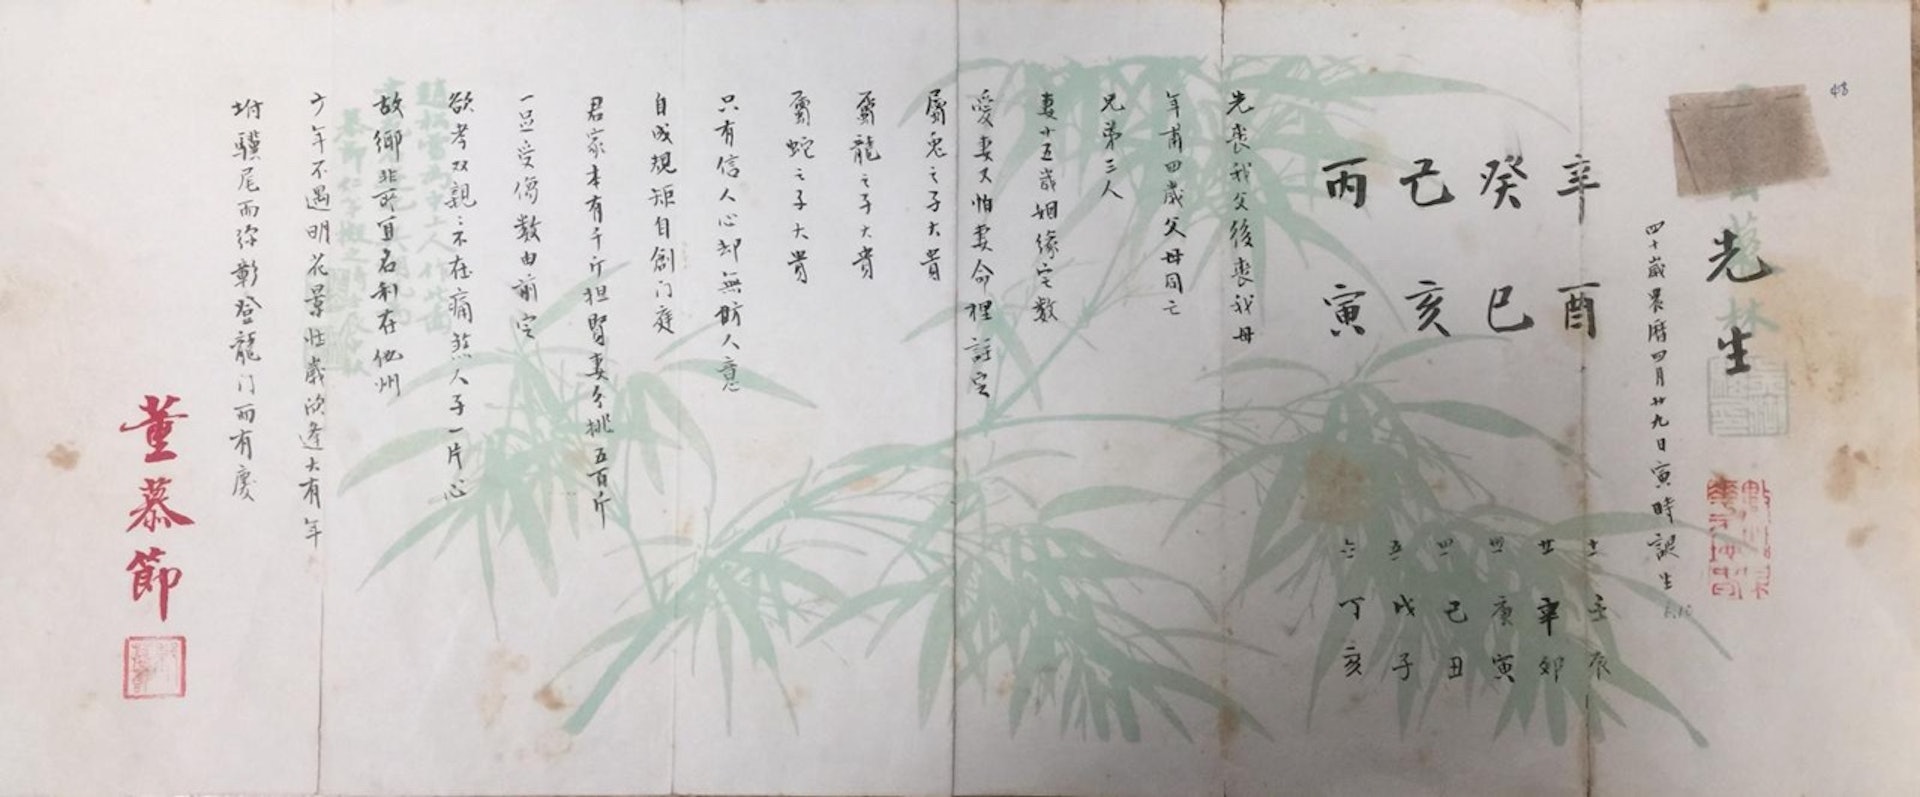 48
先生
四十歲農曆四月廿九日寅時誕生
6.10
辛酉
癸巳
己亥
丙寅
壬辰
廿 辛卯
庚寅
己丑
五 戊子
六 丁亥
先喪我父後喪我母
年甫四歲父母同亡
兄弟三人
妻廿五歲姻緣定數
愛妻又怕妻命裡註定
屬兔之子大貴
屬龍之子大貴
屬蛇之子大貴
只有信人心却無防人意
自成規矩自創门庭
君家本有千斤担賢妻多挑五百斤
一旦受傷數由前定
欲孝双親親不在痛煞人子一片心
故鄉非所宜名利在他州
方年不遇明花景性歲欣逢大有年
坿驥尾而彌彰登龍门而有慶
董慕節